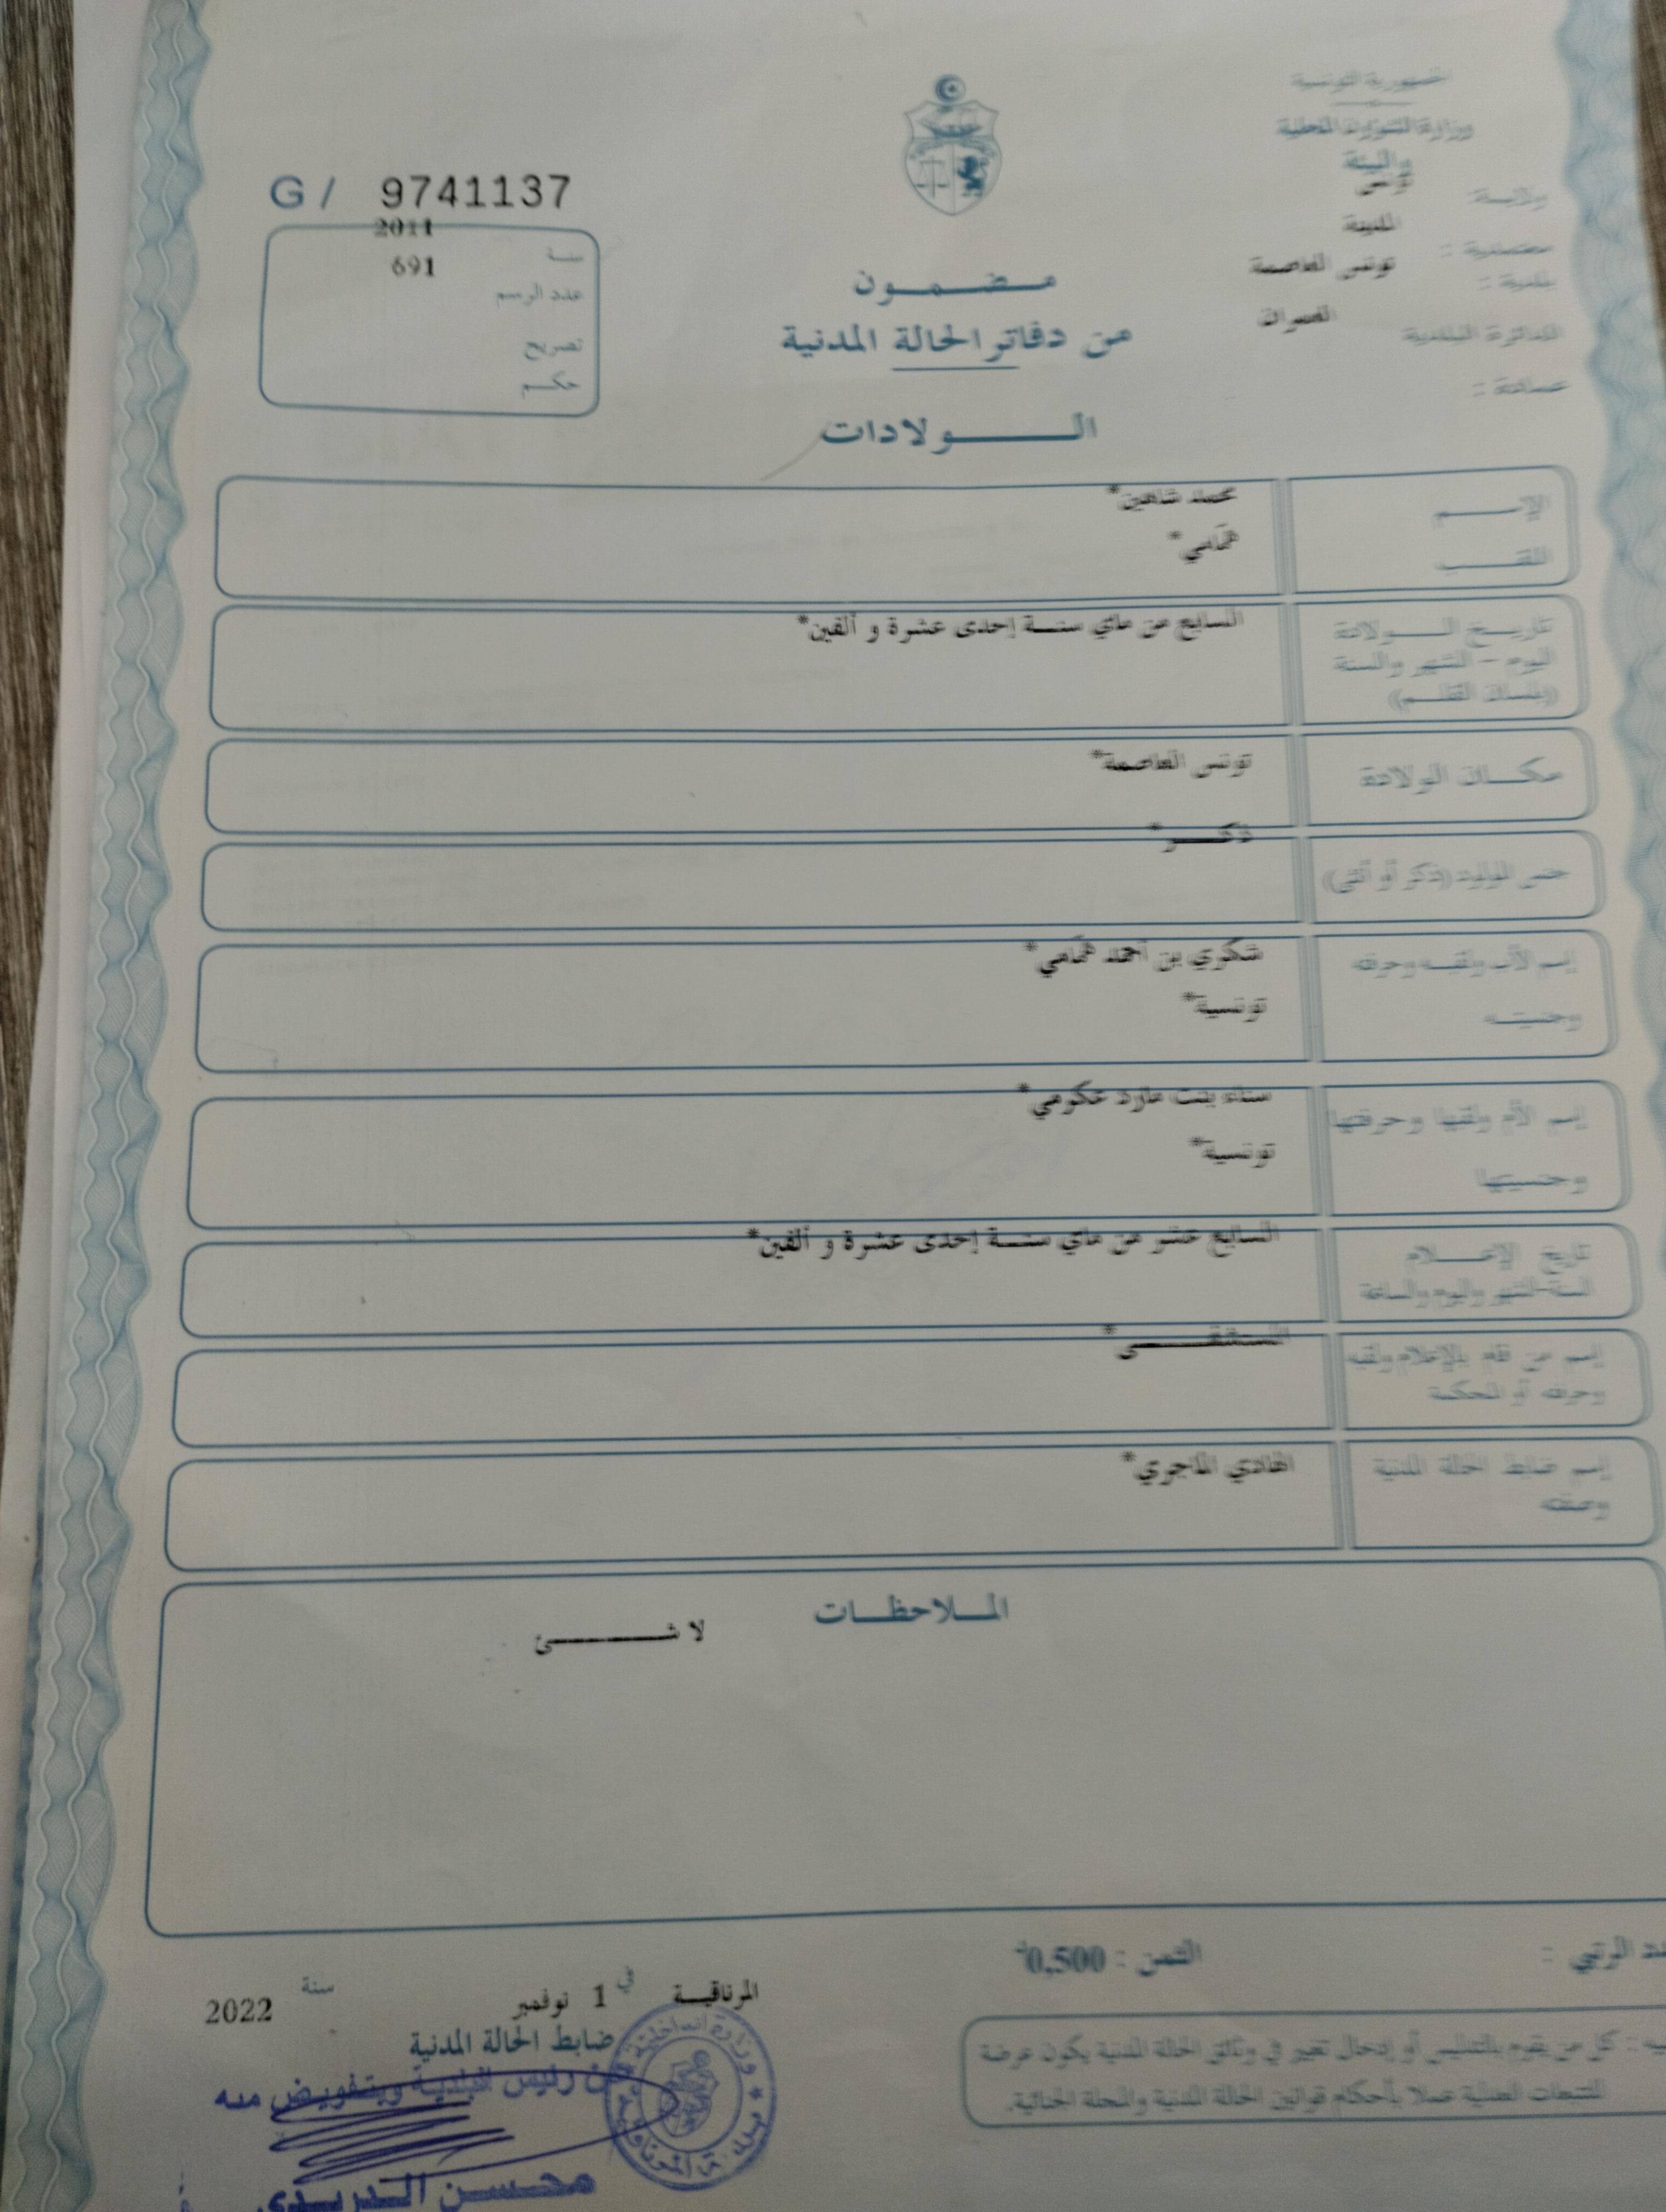 الجمهورية التونسية
وزارة الشؤون المحلية
والبيئة
ولاية: تونس
معتمدية: المدينة
بلدية: تونس العاصمة
الدائرة البلدية
عمادة:
G/ 9741137
سنة 2011
عدد الرسم 691
تصريح
حكم
مضمون
من دفاتر الحالة المدنية
الولادات
الإسم محمد شاهين*
اللقب همّامي*
تاريخ الولادة السابع من ماي سنة إحدى عشرة و ألفين*
اليوم - الشهر والسنة
(بلسان القلم)
مكان الولادة تونس العاصمة*
جنس المولود (ذكر أو أنثى) ذكر*
إسم الأب ولقبه وحرفته شكري بن أحمد همّامي*
وجنسيته تونسية*
إسم الأم ولقبها وحرفتها سناء بنت عكرمي*
وجنسيتها تونسية*
تاريخ الإعلام السابع عشر من ماي سنة إحدى عشرة و ألفين*
السنة-الشهر واليوم والساعة
إسم من قام بالإعلام ولقبه المستشفى*
وحرفته أو المحكمة
إسم ضابط الحالة المدنية الهادي الماجري*
وصفته
الملاحظات
لا شئ
الثمن : 0,500د
المرناقية في 1 نوفمبر سنة 2022
ضابط الحالة المدنية
عن رئيس البلدية وبتفويض منه
محسن الدريدي
كل من يقوم بالتدليس أو إدخال تغيير في وثائق الحالة المدنية يكون عرضة
للتتبعات العدلية عملا بأحكام قوانين الحالة المدنية والمجلة الجنائية.
وزارة الداخلية
بلدية المرناقية